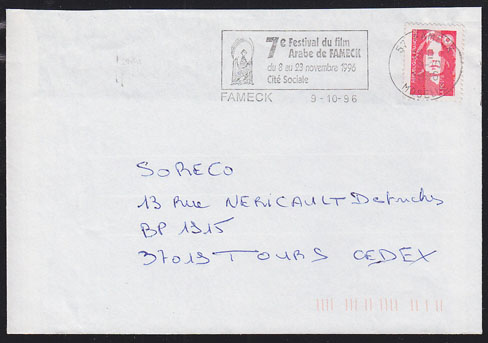 7e Festival du film
Arabe de FAMECK
du 8 au 23 novembre 1996
Cité Sociale
FAMECK 9-10-96
57
SORECO
13 Rue NERICAULT Destouches
BP 1315
37013 TOURS CEDEX